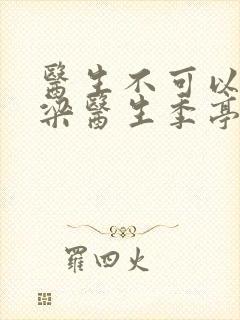 醫生不可以
梁醫生季亭
羅四火